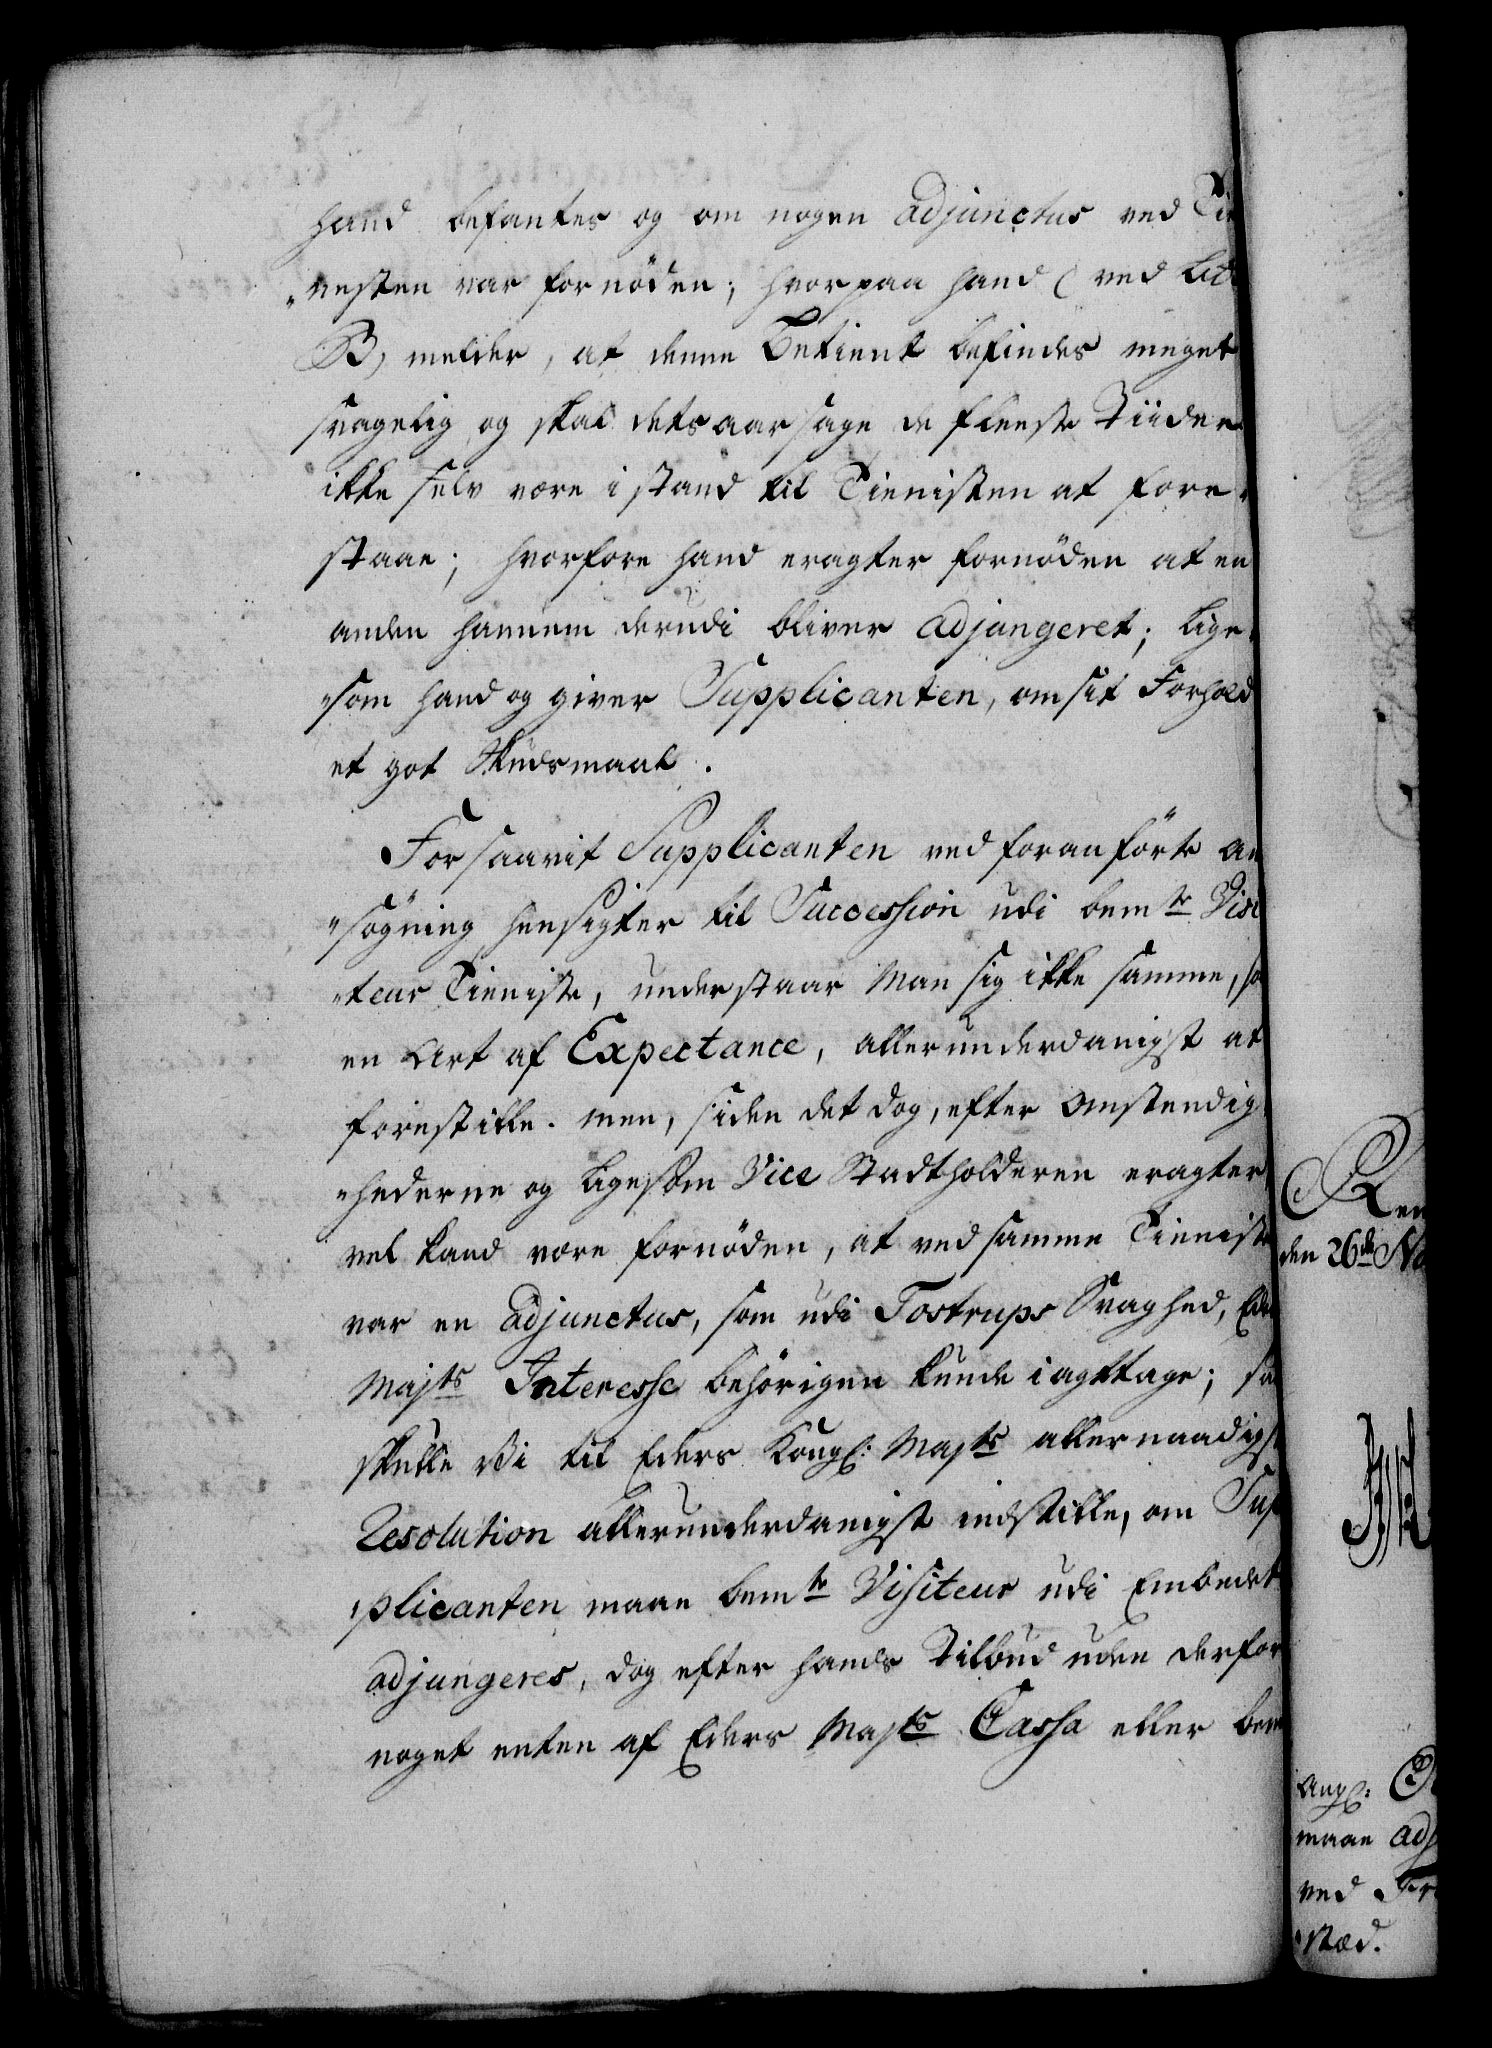 hand befantes og om nogen adjunctus ved Tie
„nesten var fornöden; hvorpaa hand (ved Lit
B) melder, at denne Betient befindes meget
svagelig og skal dets aarsage de fleeste Tiider
ikke selv være i stand til Tienisten at fore„
staae; hvorfore hand eragter fornöden at en
anden hannem derudi bliver adjungeret; lige„
„som hand og giver Supplicanten, om sit Forhold
et got Skudsmaal.
Forsaavit Supplicanten ved foranförte an
„sögning hensigter til Succession udi bemte Visi
„teur Tieniste, understaar Man sig ikke samme, so
en Art af Expectance, allerunderdanigst at
forestille. men, siden det dog, efter Omstendig„
„hederne og ligesom Vice Stadtholderen eragter
vel kand være fornöden, at ved samme Tieniste
var en adjunctus, som udi Tostrups Svaghed, Eders
Majts Interesse behörigen kunde iagttage; saa
skulle Vi til Eders Kongl: Majts allernaadigst
Resolution allerunderdanigst indstille, om Sup
„plicanten maae bemte Visiteur udi Embedet
adjungeres, dog efter hands Tilbud uden derfor
noget enten af Eders Majts Cassa eller bem
Ren
den 26de No
Angl:
maae adj
ved Fr
„stæd.